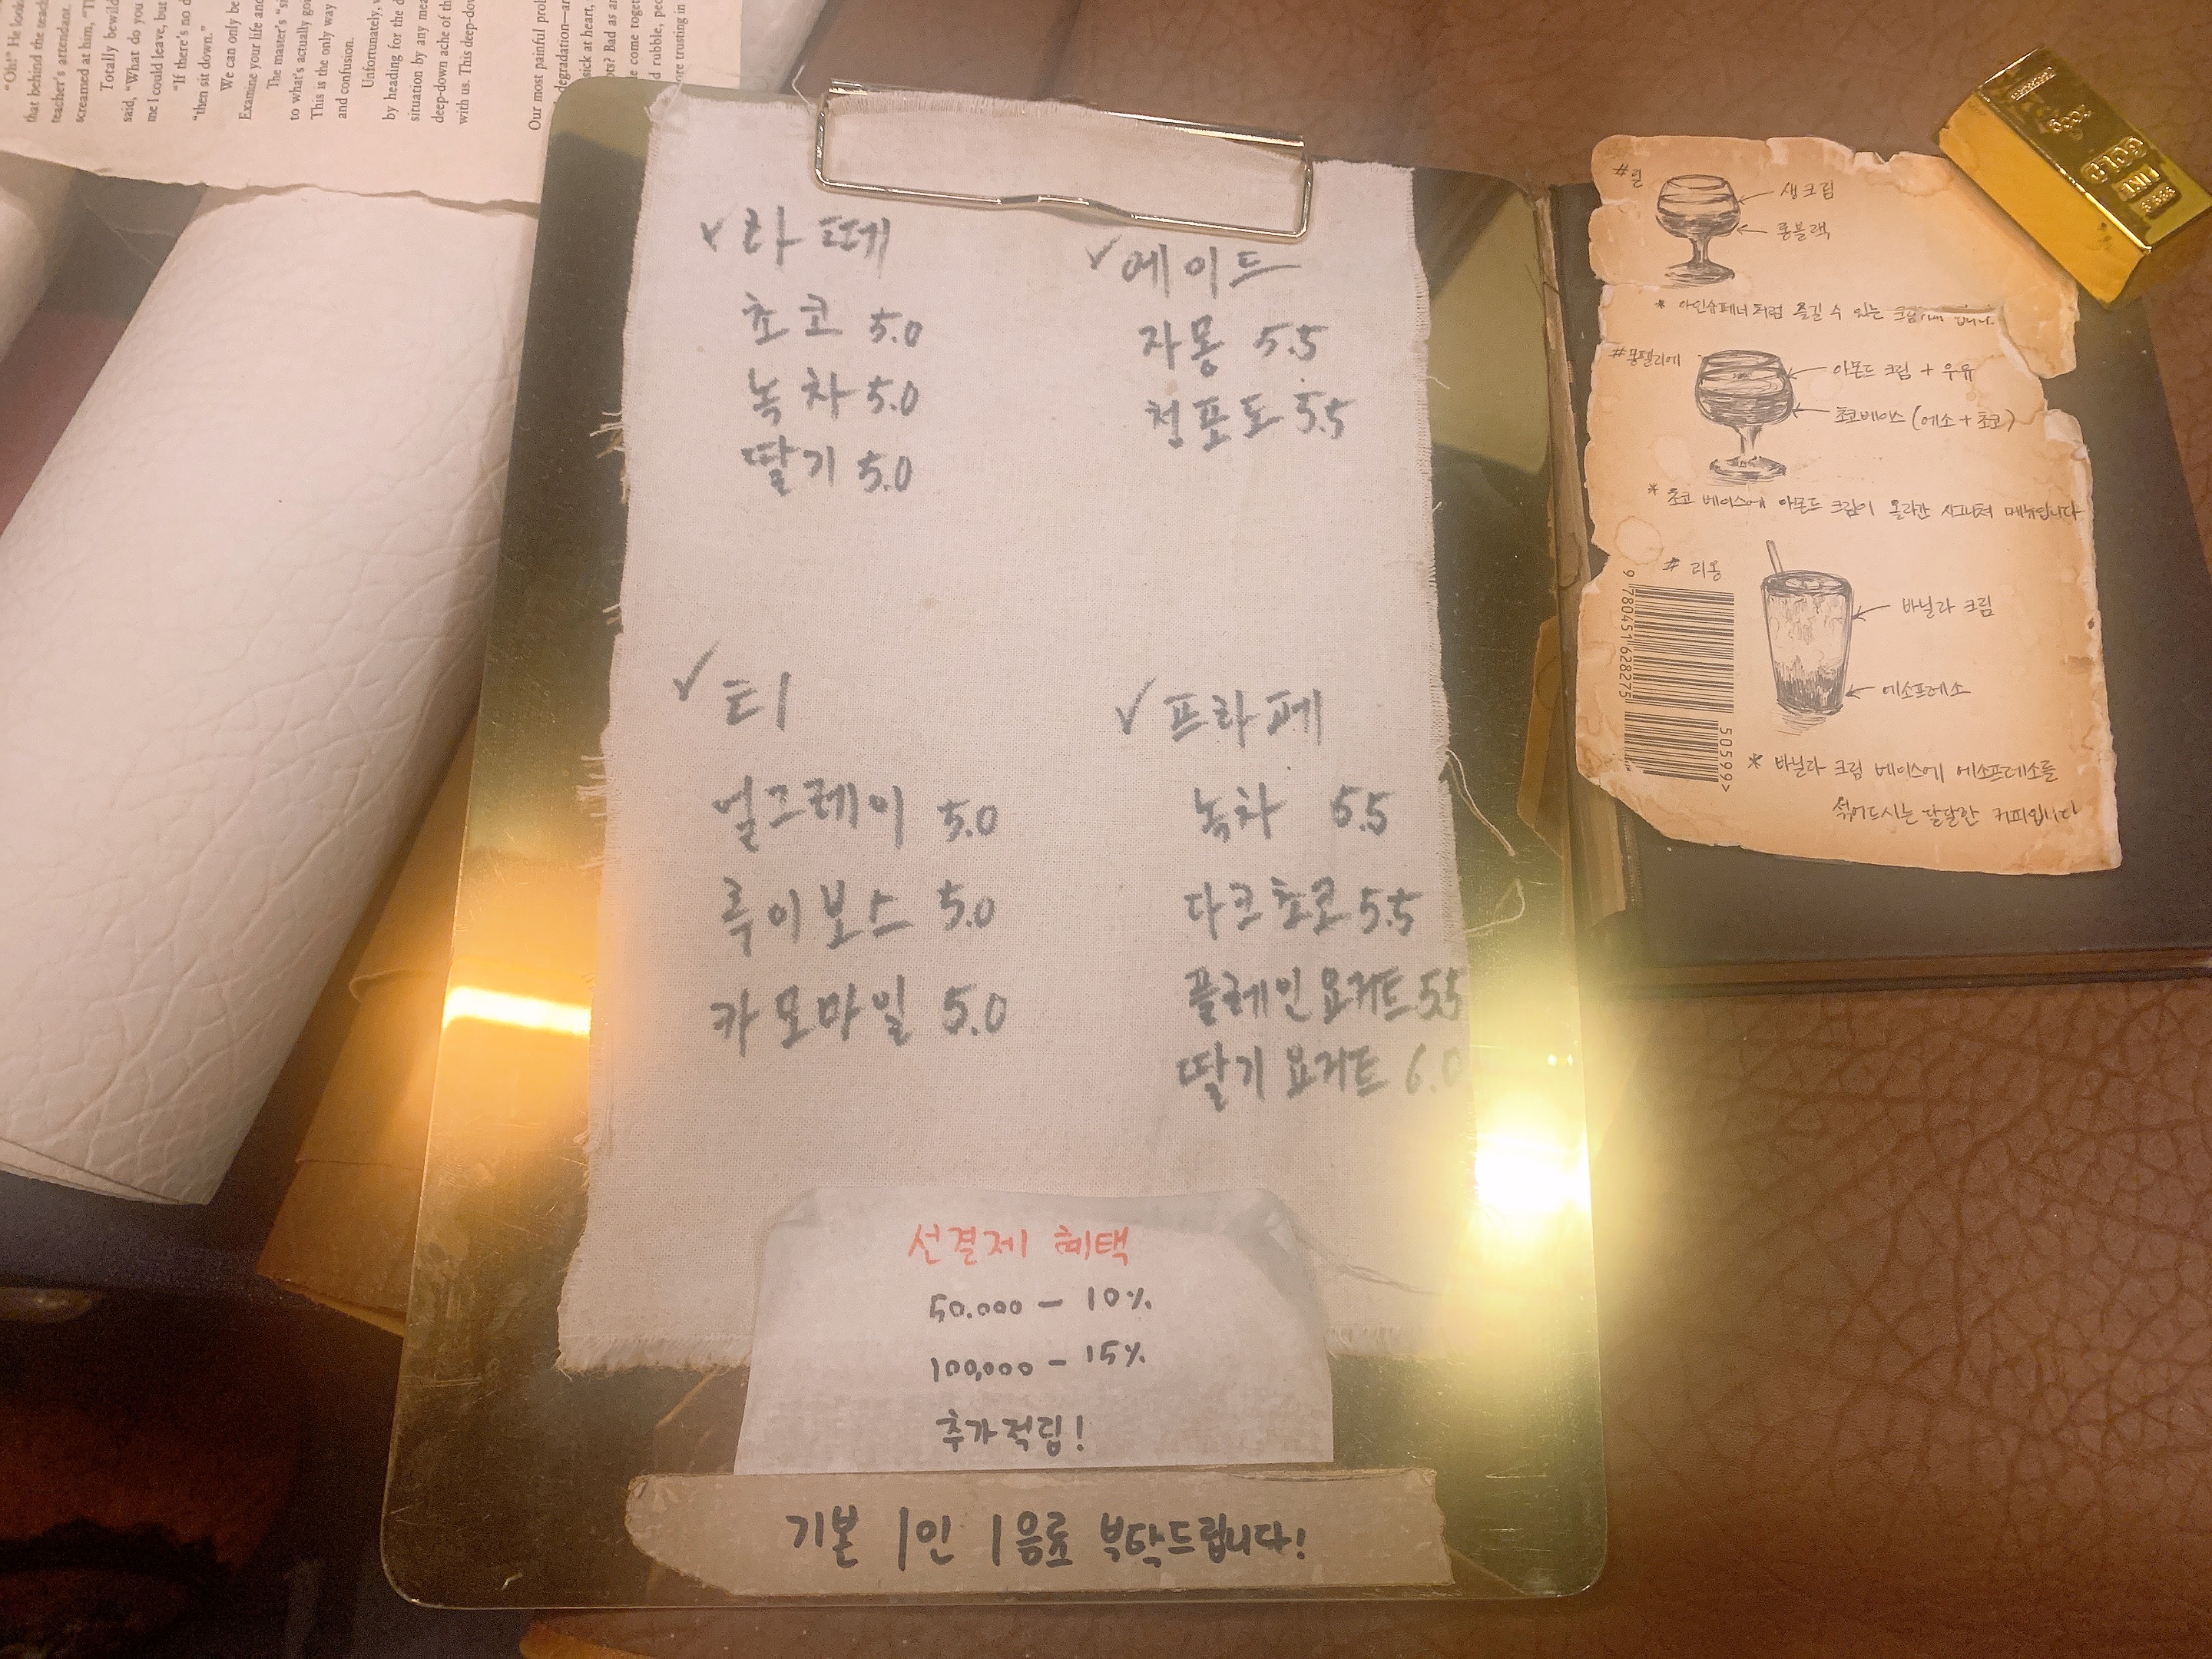 "Oh!" He look
that behind the teach
teacher's attendant.
screamed at him, "T
Totally bewild
said, "What do you
me I could leave, but
"If there's no d
"then sit down."
We can only be
Examine your life and
The master's "si
to what's actually goi
This is the only way
and confusion.
Unfortunately, w
by heading for the d
situation by any mea
deep-down ache of th
with us. This deep-dow
Our most painful prob
degradation—ar
sick at heart,
ots? Bad as ar
le come toget
d rubble, peo
ore trusting in
✓ 라떼
초코 5.0
녹차 5.0
딸기 5.0
✓ 에이드
자몽 5.5
청포도 5.5
✓ 티
얼그레이 5.0
루이보스 5.0
카모마일 5.0
✓ 프라페
녹차 5.5
다크초코 5.5
플레인요거트 5.5
딸기 요거트 6.0
선결제 혜택
50.000 - 10%
100,000 - 15%
추가적립!
기본 1인 1음료 부탁드립니다!
생크림
롱블랙
* 아인슈페너처럼 즐길 수 있는 크림
#몽펠리에
아몬드 크림 + 우유
초코베이스 (에소 + 초코)
* 초코 베이스에 아몬드 크림이 올라간 시그니처 메뉴입니다
# 리옹
바닐라 크림
에소프레소
* 바닐라 크림 베이스에 에소프레소를
섞어드시는 달달한 커피입니다
9 780451 628275
50599>
FINE
GOLD